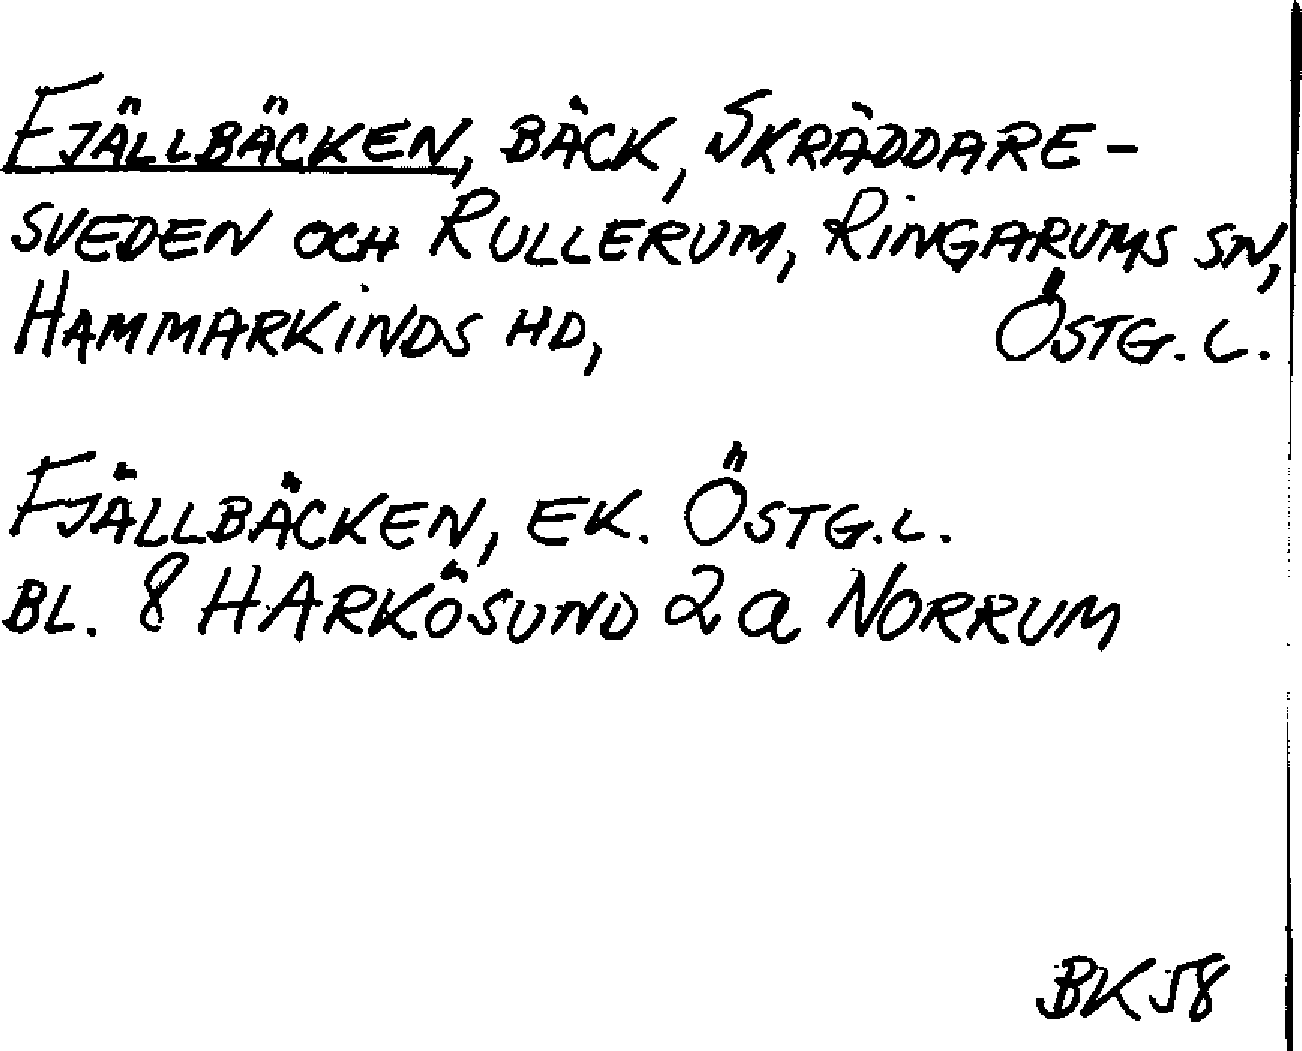 FJÄLLBÄCKEN, BÄCK, SKRÄDDARE-
SVEDEN OCH RULLERUM, RINGARUMS SN,
HAMMARKINDS HD, ÖSTG. L.
FJÄLLBÄCKEN, EK. ÖSTG.L.
BL. 8 HARKÖSUND 2a NORRUM
BK58